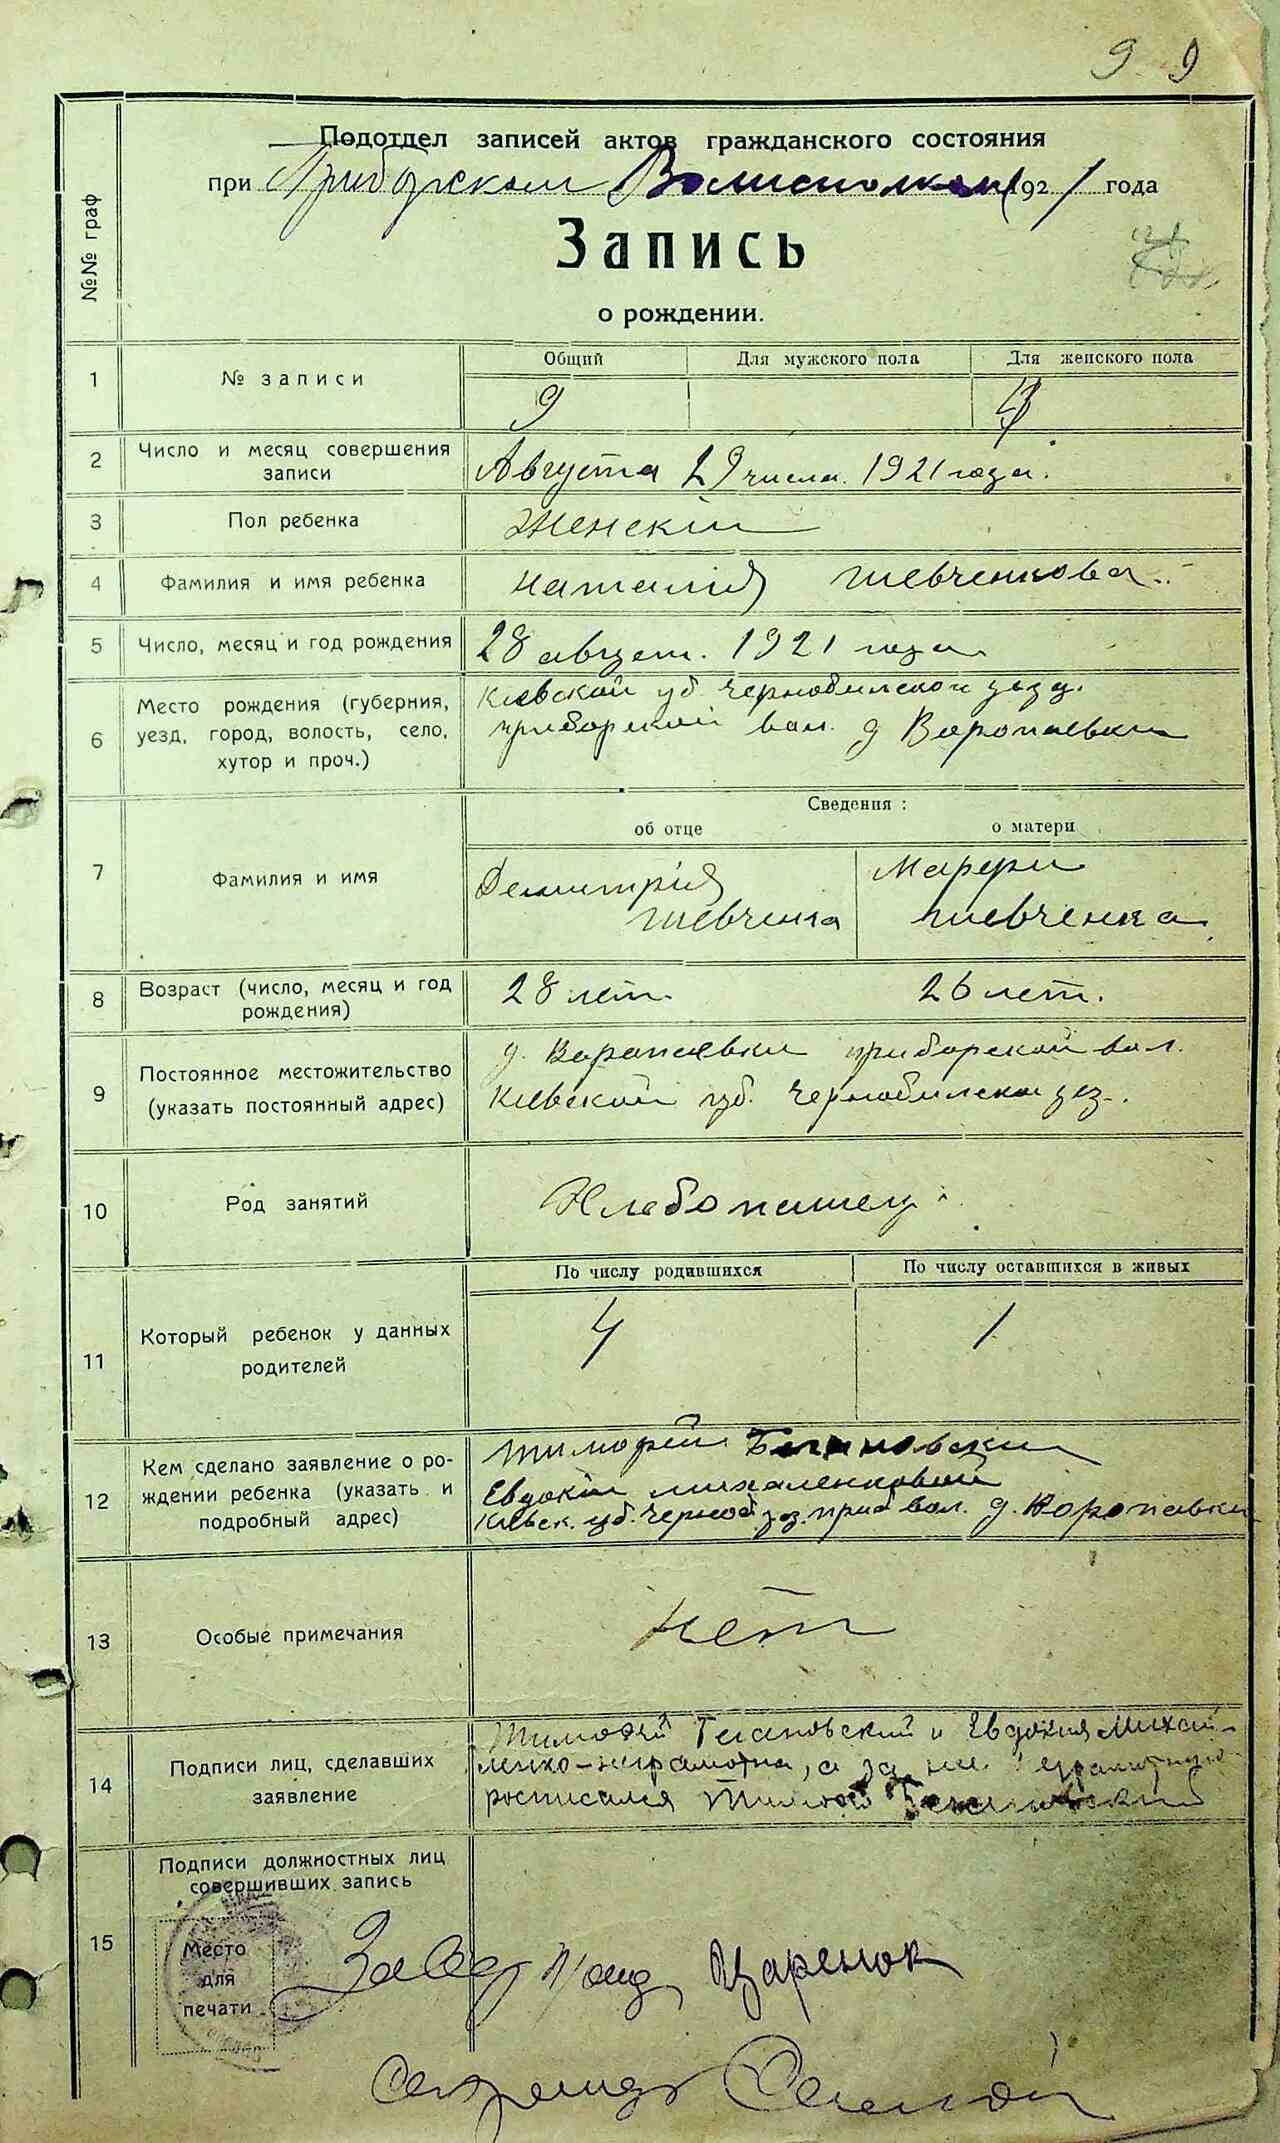 9 9
Подотдел записей актов гражданского состояния
при Приборском Волисполком 1921 года
Запись
о рождении.
№№ граф
1 № записи
Общий Для мужского пола Для женского пола
9 4
2 Число и месяц совершения записи
Августа 29 числа. 1921 года.
3 Пол ребенка Женскiй
4 Фамилия и имя ребенка Наталiя Шевченкова
5 Число, месяц и год рождения 28 август. 1921 года
6 Место рождения (губерния, уезд, город, волость, село, хутор и проч.)
Киевской губ. Чернобильской уезд.
приборской вол. д Воропаевки
Сведения :
об отце о матери
7 Фамилия и имя
Демитрiя Марфи
Шевченка Шевченка
8 Возраст (число, месяц и год рождения)
28 лет. 26 лет.
9 Постоянное местожительство (указать постоянный адрес)
д. Воропаевки приборской вол.
Киевской губ. Чернобильской уез.
10 Род занятий Хлебопашец
11 Который ребенок у данных родителей
По числу родившихся По числу оставшихся в живых
4 1
12 Кем сделано заявление о рождении ребенка (указать и подробный адрес)
Тимофей
Евдокiи Михаленковой
Киевск. губ. Черноб уез. приб вол. д. Воропаевки
13 Особые примечания нет
14 Подписи лиц, сделавших заявление
Тимофей и Евдокия Михай-
ленко-неграмотна, а за нее
росписался Тимофей
15 Подписи должностных лиц совершивших запись
Место
для
печати
Завед Царенок
Секретарь